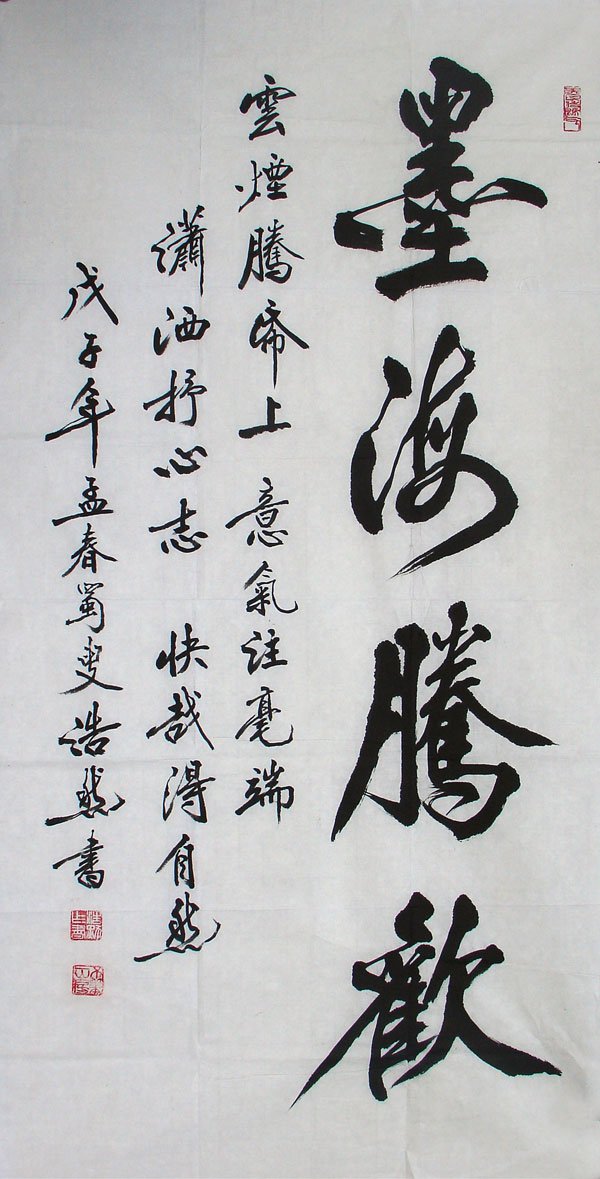 墨海騰歡
雲煙騰帋上 意氣注毫端
瀟洒抒心志 快哉得自然
戊子年孟春蜀叟浩然書